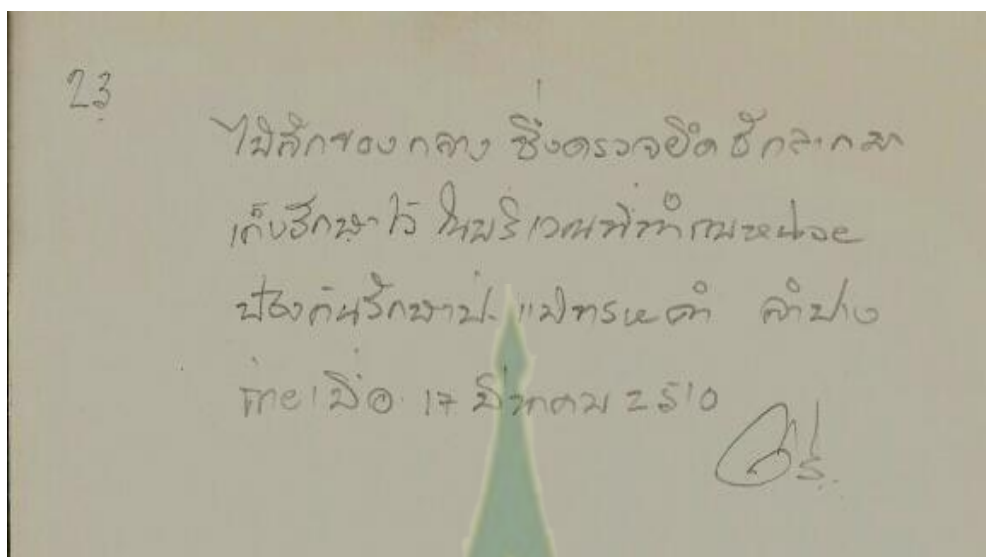 23
ไม้สักของกลาง ซึ่งตรวจยึด ชักลากมา
เก็บรักษาไว้ ในบริเวณที่ทำการหน่วย
ป้องกันรักษาป่า ลำปาง
ถ่ายเมื่อ 17 มีนาคม 2510